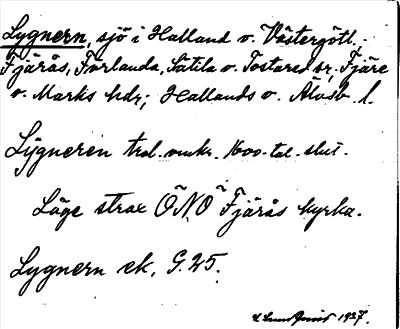 Lygnern, sjö i Halland o. Västergötl.,
Fjärås, Förlanda, Sätila o. Tostared sr, Fjäre
o. Marks hdr; Hallands o. Älvsb. l.
Lygneren trol. omkr. 1600-tal. slut.
Läge strax ÖNÖ Fjärås kyrka.
Lygnern ek. G.25.
1927.